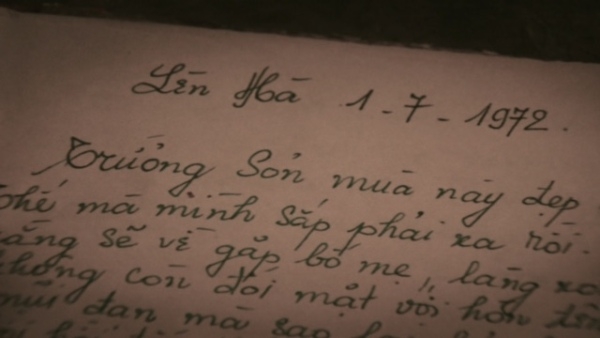 Lèn Hà 1 - 7 - 1972.
Trường Sơn mùa này đẹp
thế mà mình sắp phải xa rồi.
sẽ về gặp bố mẹ, làng
không còn đối mặt với hòn
mũi đạn mà sao